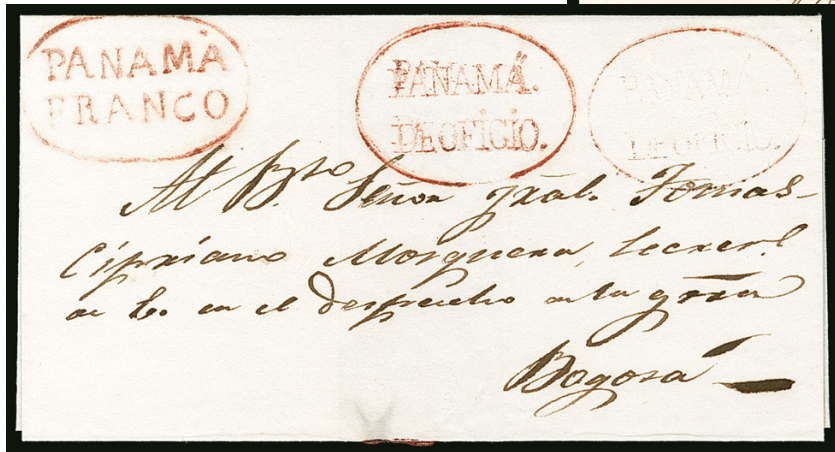 PANAMÁ
FRANCO
PANAMÁ.
DE OFICIO.
PANAMÁ.
DE OFICIO.
Al Señor Gral. Tomas
Cipriano Mosquera, Secret.
de E. en el Despacho de la
Bogotá